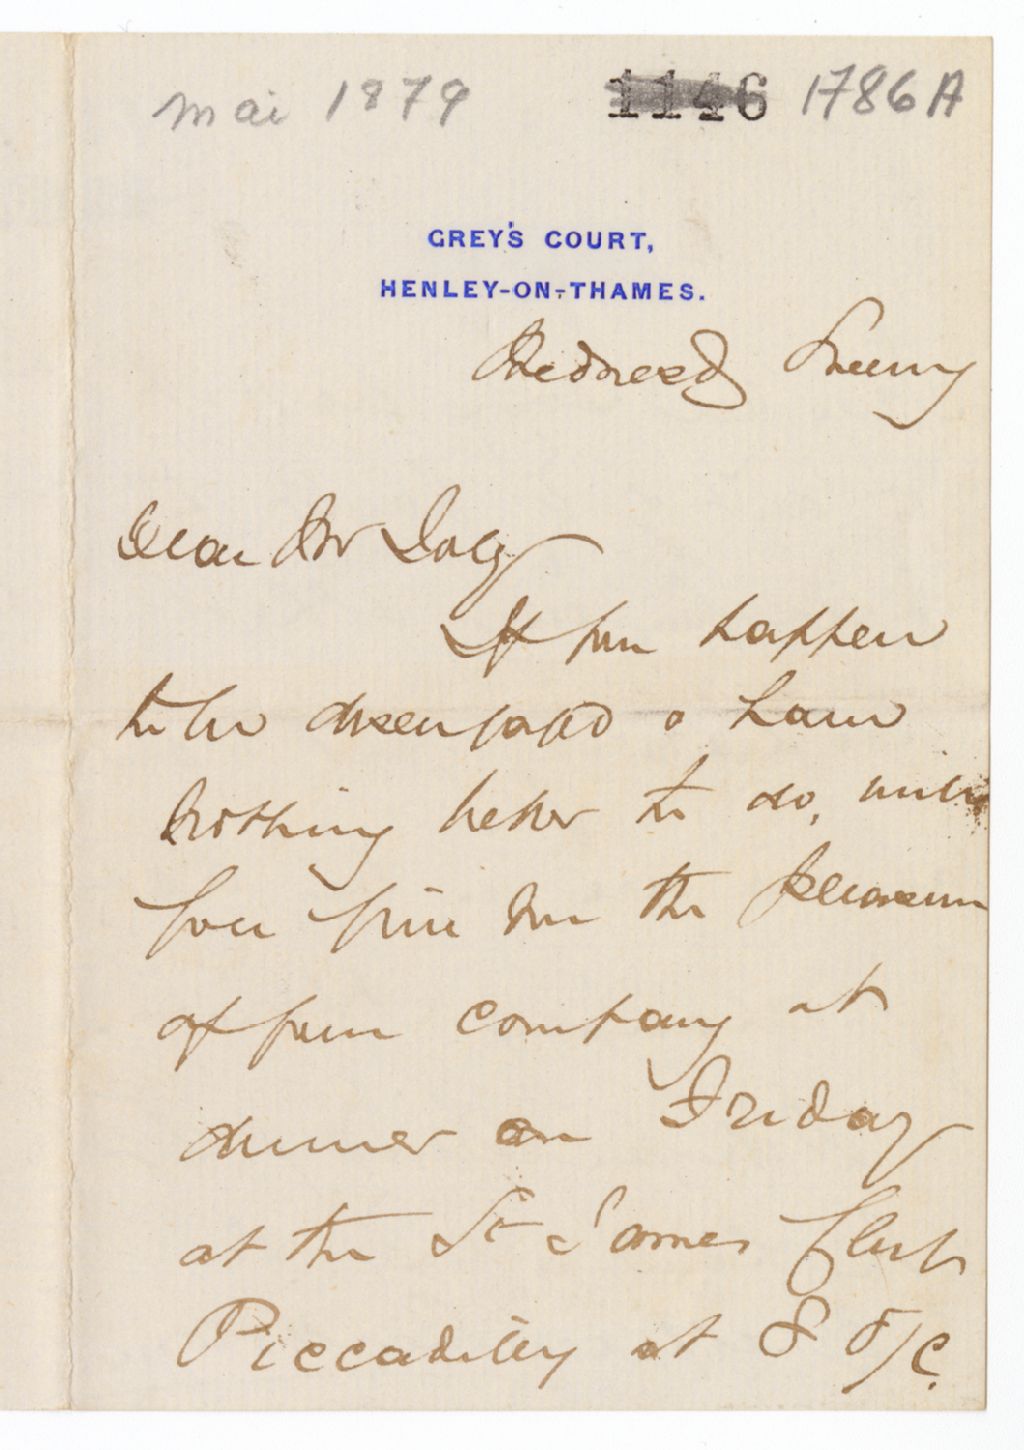 mai 1879 1146 1786A
GREY'S COURT,
HENLEY-ON-THAMES.
Wednesdy Evening
Dear Mr
If you happen
to be disengaged & have
nothing better to do, will
you give me the pleasure
of your company at
dinner on Friday
at the St James Club
Piccadilly at 8 o/c.